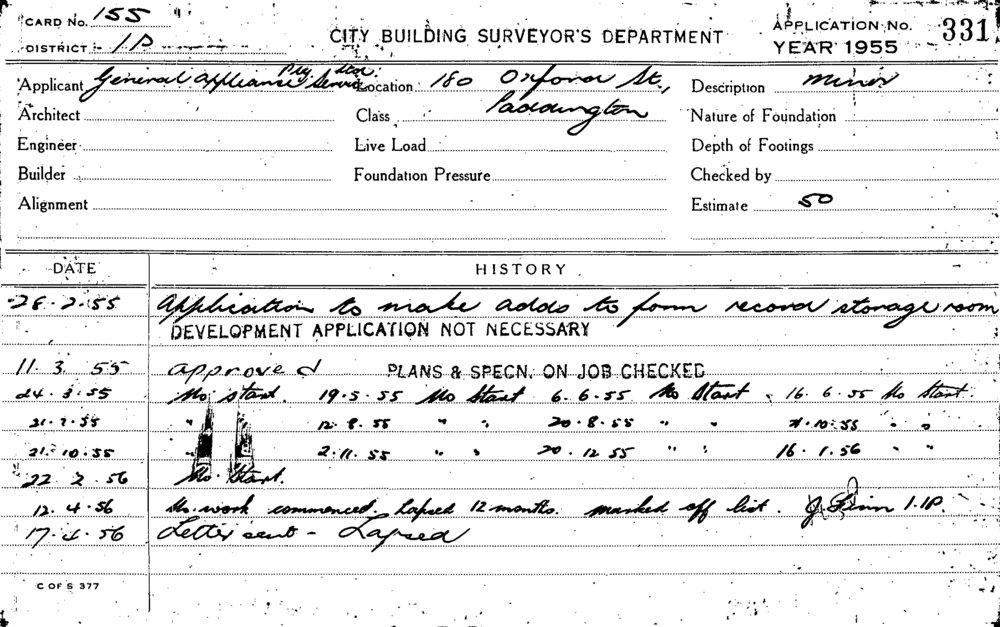 CARD No. 155
DISTRICT - 1P
CITY BUILDING SURVEYOR'S DEPARTMENT
APPLICATION No. 331
YEAR 1955
Applicant General Appliance Service Pty Ltd. Location 180 Oxford St., Description minor
Architect Class Paddington Nature of Foundation
Engineer Live Load Depth of Footings
Builder Foundation Pressure Checked by
Alignment Estimate 50
DATE HISTORY
28.2.55 Application to make adds to form record storage room
DEVELOPMENT APPLICATION NOT NECESSARY
11.3.55 approved PLANS & SPECN. ON JOB CHECKED
24.3.55 No start. 19.5.55 No Start 6.6.55 No Start 16.6.55 No Start.
21.7.55 " " 12.8.55 " " 20.8.55 " " 10.55 " "
21.10.55 " " 2.11.55 " " 20.12.55 " " 16.1.56 " "
22.2.56 No Start.
12.4.56 No work commenced. Lapsed 12 months. marked off list. J. Finn 1.1P.
17.4.56 Letter sent - Lapsed
C OF S 377